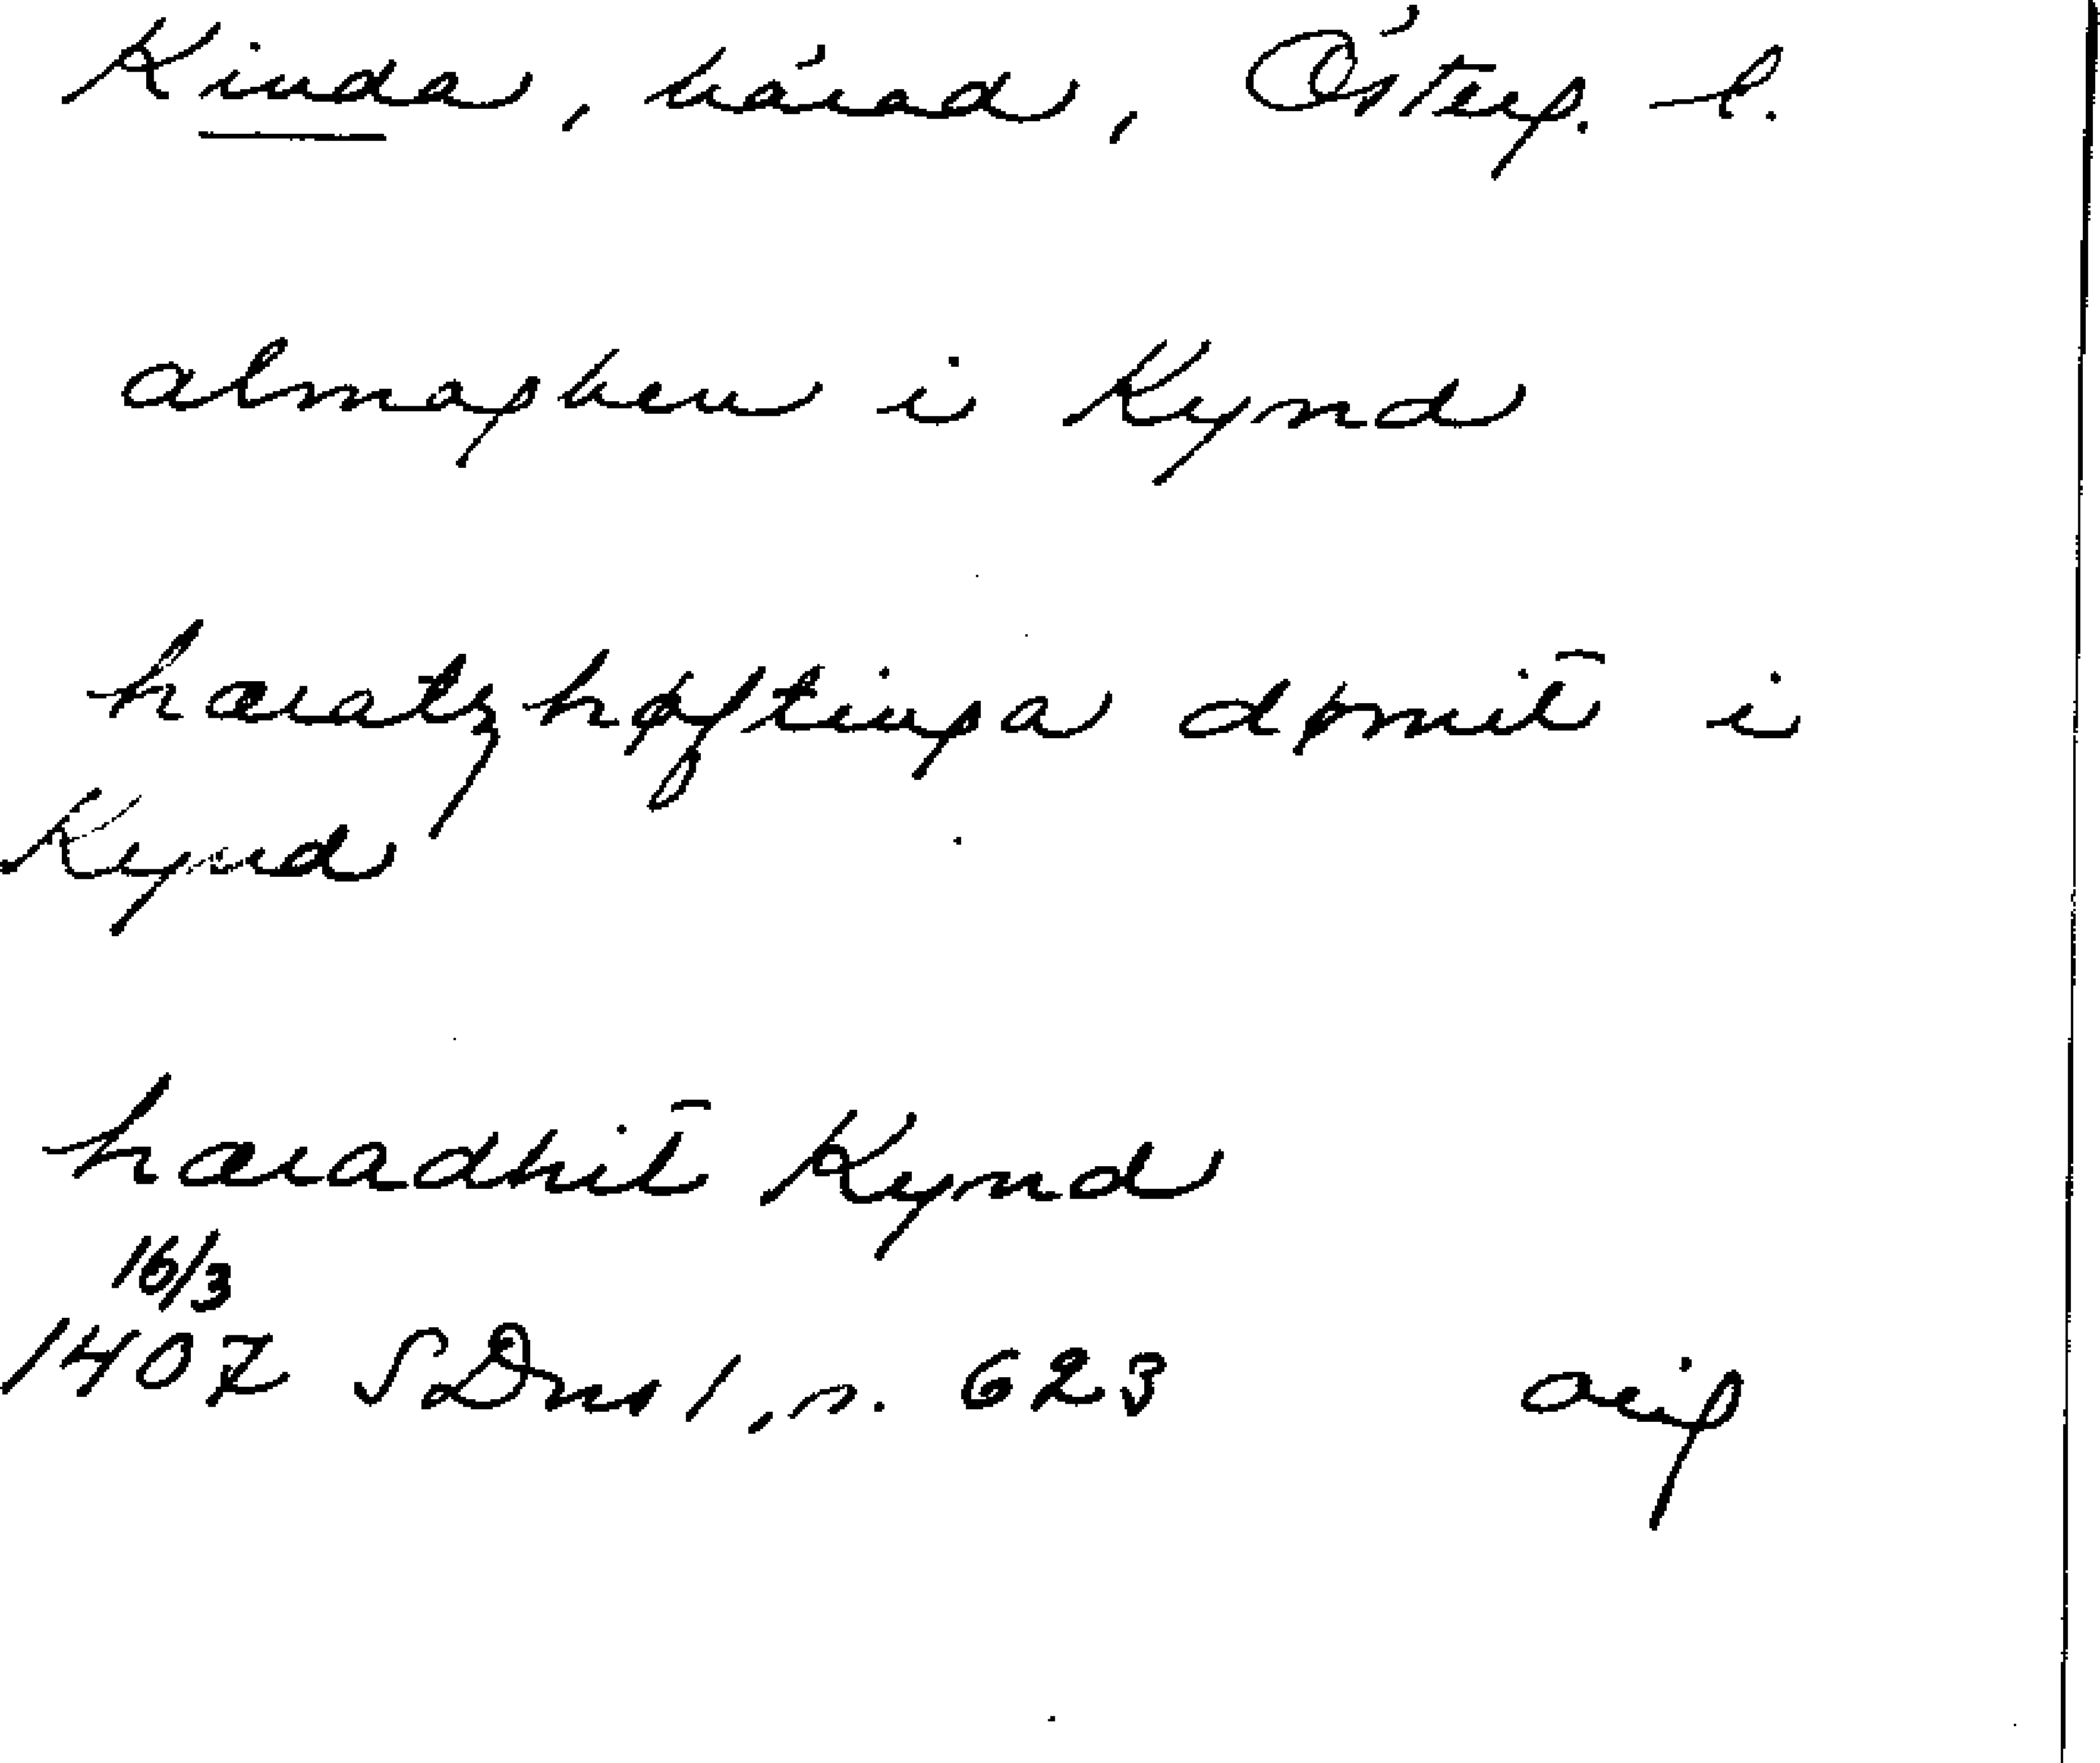 Kinda, härad, Österg. l.
almoghen i Kynd
hæratzhøftinga dømit i
Kynd
hæradhit Kynd
16/3
1407 SDns 1, n. 623 orig